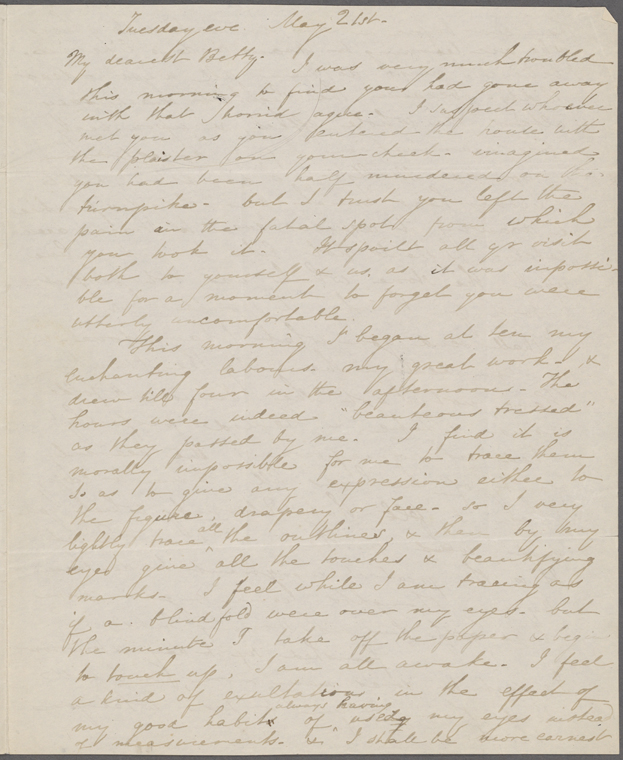 Tuesday eve May 21st-
My dearest Betty. I was very much troubled
this morning to find you had gone away
with that horrid ague. I suspect whoever
met you as you entered the house with
the plaister on your cheek - imagined
you had been half murdered on the
turnpike - but I trust you left the
pain in the fatal spot from which
you took it. It spoilt all yr visit
both to yourself & us. as it was impossi-
ble for a moment to forget you were
utterly uncomfortable.
This morning I began at ten my
enchanting labours - my great work - &
drew till four in the afternoon - The
hours were indeed "beauteous tressed"
as they passed by me. I find it is
morally impossible for me to trace them
so as to give any expression either to
the figure, drapery or face - so I very
lightly trace all the outlines, & then by my
eyes give all the touches & beautifying
marks. I feel while I am tracing as
if a blindfold were over my eyes - but
the minute I take off the paper & begin
to touch up, I am all awake - I feel
a kind of exultation in the effect of
my good habits of always having used my eyes instead
of measurements - & I shall be more earnest